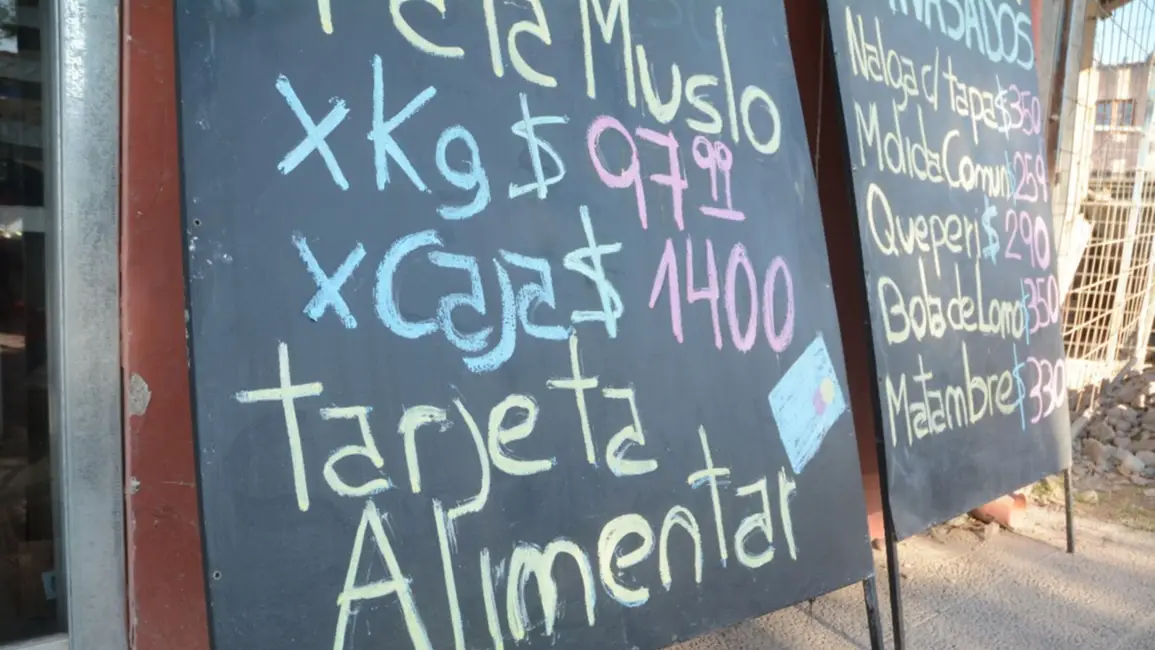 Pata Muslo
xKg $ 97.99
xCaja $ 1400
Tarjeta
Alimentar
ENVASADOS
Nalga c/ tapa $350
Molida Comun $259
Queperi $ 290
Bola de Lomo $350
Matambre $ 330